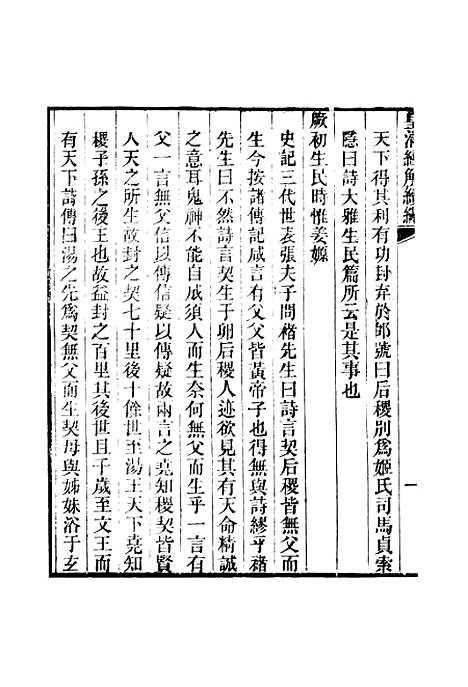 皇清經解續編
一
天下得其利有功封弃於邰號曰后稷別爲姬氏司馬貞索
隱曰詩大雅生民篇所云是其事也
厥初生民時惟姜嫄
史記三代世表張夫子問褚先生曰詩言契后稷皆無父而
生今按諸傳記咸言有父父皆黃帝子也得無與詩繆乎褚
先生曰不然詩言契生于卵后稷人迹欲見其有天命精誠
之意耳鬼神不能自成須人而生奈何無父而生乎一言有
父一言無父信以傳信疑以傳疑故兩言之堯知稷契皆賢
人天之所生故封之契七十里後十餘世至湯王天下堯知
稷子孫之後王也故益封之百里其後世且千歲至文王而
有天下詩傳曰湯之先爲契無父而生契母與姊妹浴于玄